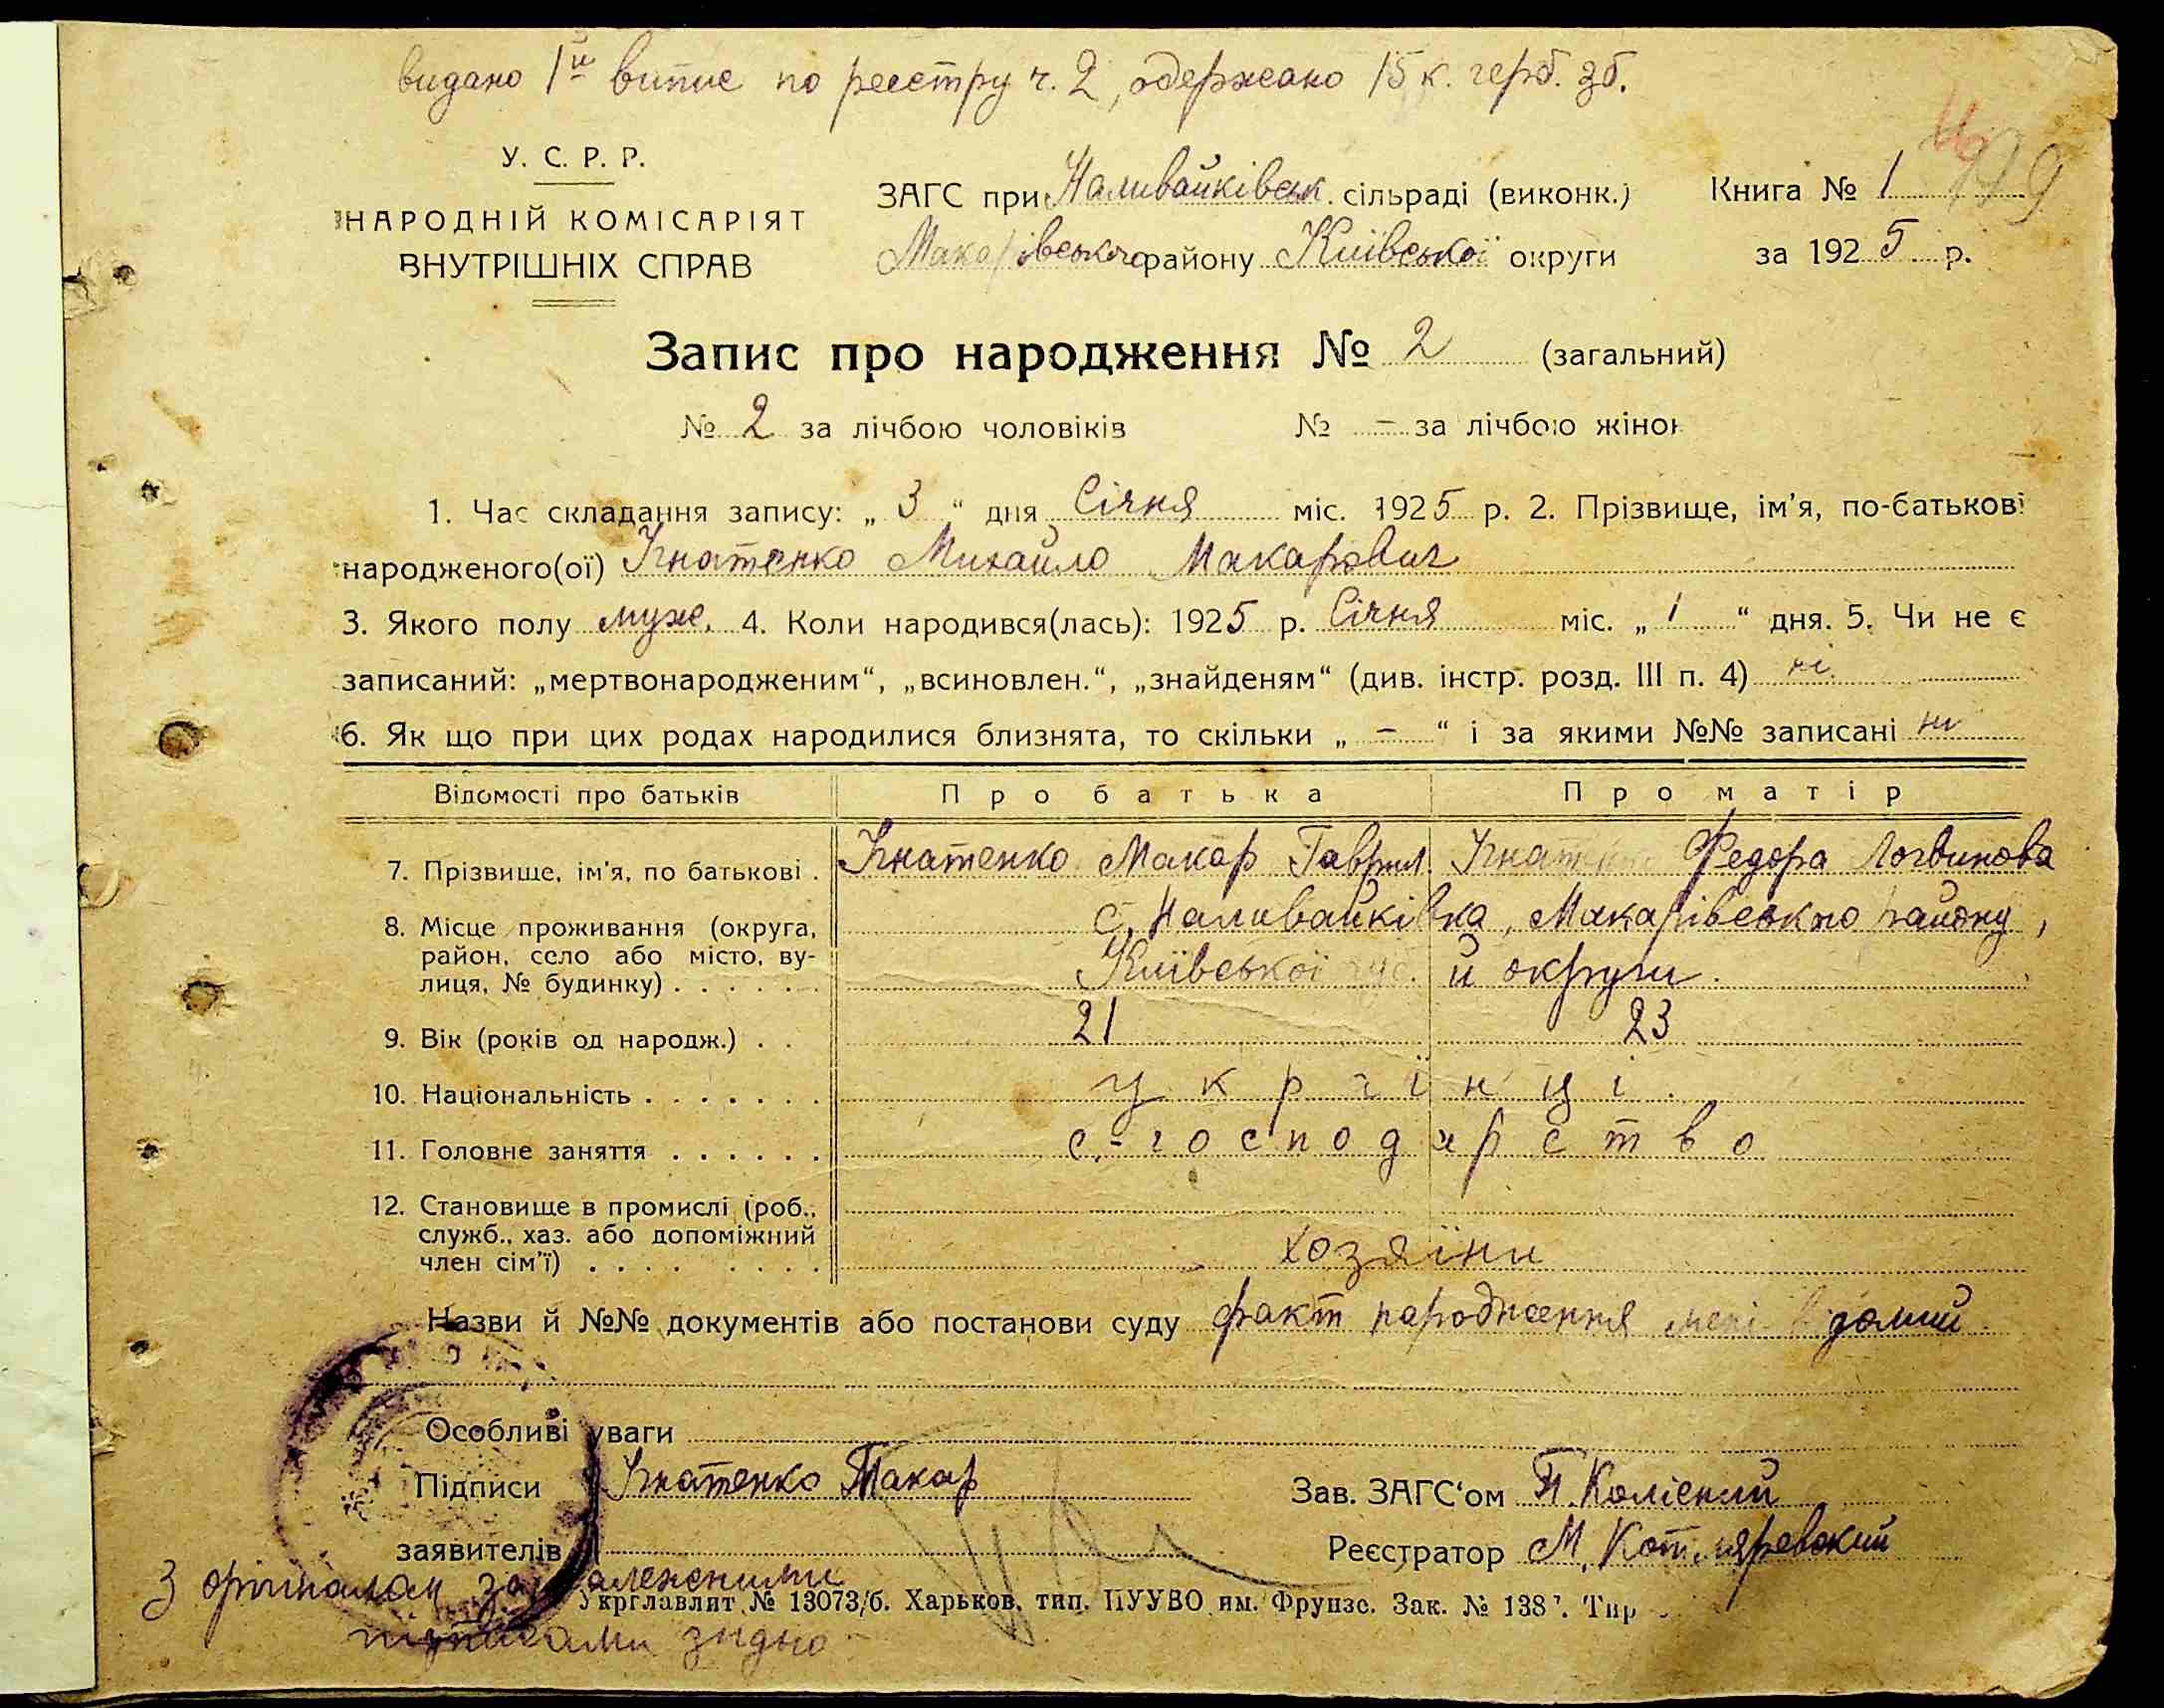 видано 1й випис по реєстру ч. 2, одержано 15 к. герб. зб.
У. С. Р. Р.
НАРОДНІЙ КОМІСАРІЯТ
ВНУТРІШНІХ СПРАВ
ЗАГС при Наливайківськ. сільраді (виконк.)
Макарівського району Київської округи
Книга № 1
за 1925 р.
Запис про народження № 2 (загальний)
№ 2 за лічбою чоловіків № – за лічбою жінок
1. Час складання запису: „ 3 “ дня Січня міс. 1925 р. 2. Прізвище, ім'я, по-батькові
народженого(ої) Ігнатенко Михайло Макарович
3. Якого полу муж. 4. Коли народився(лась): 1925 р. Січня міс. „ 1 “ дня. 5. Чи не є
записаний: „мертвонародженим“, „всиновлен.“, „знайденям“ (див. інстр. розд. III п. 4) ні
6. Як що при цих родах народилися близнята, то скільки „ – “ і за якими №№ записані ні
Відомості про батьків Про батька Про матір
7. Прізвище, ім'я, по батькові . Ігнатенко Макар Гаврил. Ігнатенко Федора Логвинова
8. Місце проживання (округа, с. Наливайківка, Макарівського району,
район, село або місто, ву-
лиця, № будинку) . . . . . . Київської й округи.
9. Вік (років од народж.) . . 21 23
10. Національність . . . . . . . українці.
11. Головне заняття . . . . . . с.-господарство
12. Становище в промислі (роб.,
служб., хаз. або допоміжний
член сім'ї) . . . . . . . . хозяїни
Назви й №№ документів або постанови суду факт народження мені відомий
Особливі уваги
Підписи Ігнатенко Макар
заявителів
Зав. ЗАГС‘ом П. Колісний
Реєстратор М. Котляревский
З оригіналом за належними
підписами згідно
Укрглавлит № 13073/б. Харьков, тип. ПУУВО им. Фрунзе. Зак. № 138 . Тир